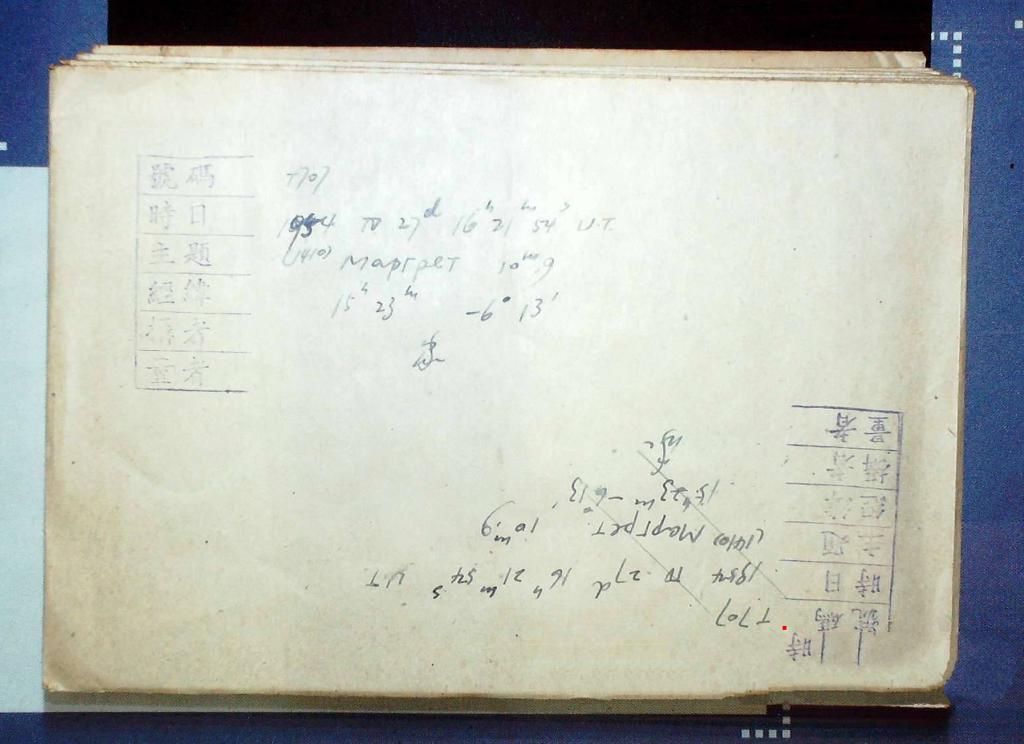 號碼 T707
時日 1954 IV 27d 16h 21m 54s U.T.
主題 (1410) Маргрет 10m.9
經緯 15h 23m -6° 13'
攝者
量者
號碼 T707
時日 1954 IV 27d 16h 21m 54s U.T
主題 (1410) Маргрет 10m.9
經緯 15h 23m -6° 13'
攝者
量者
時